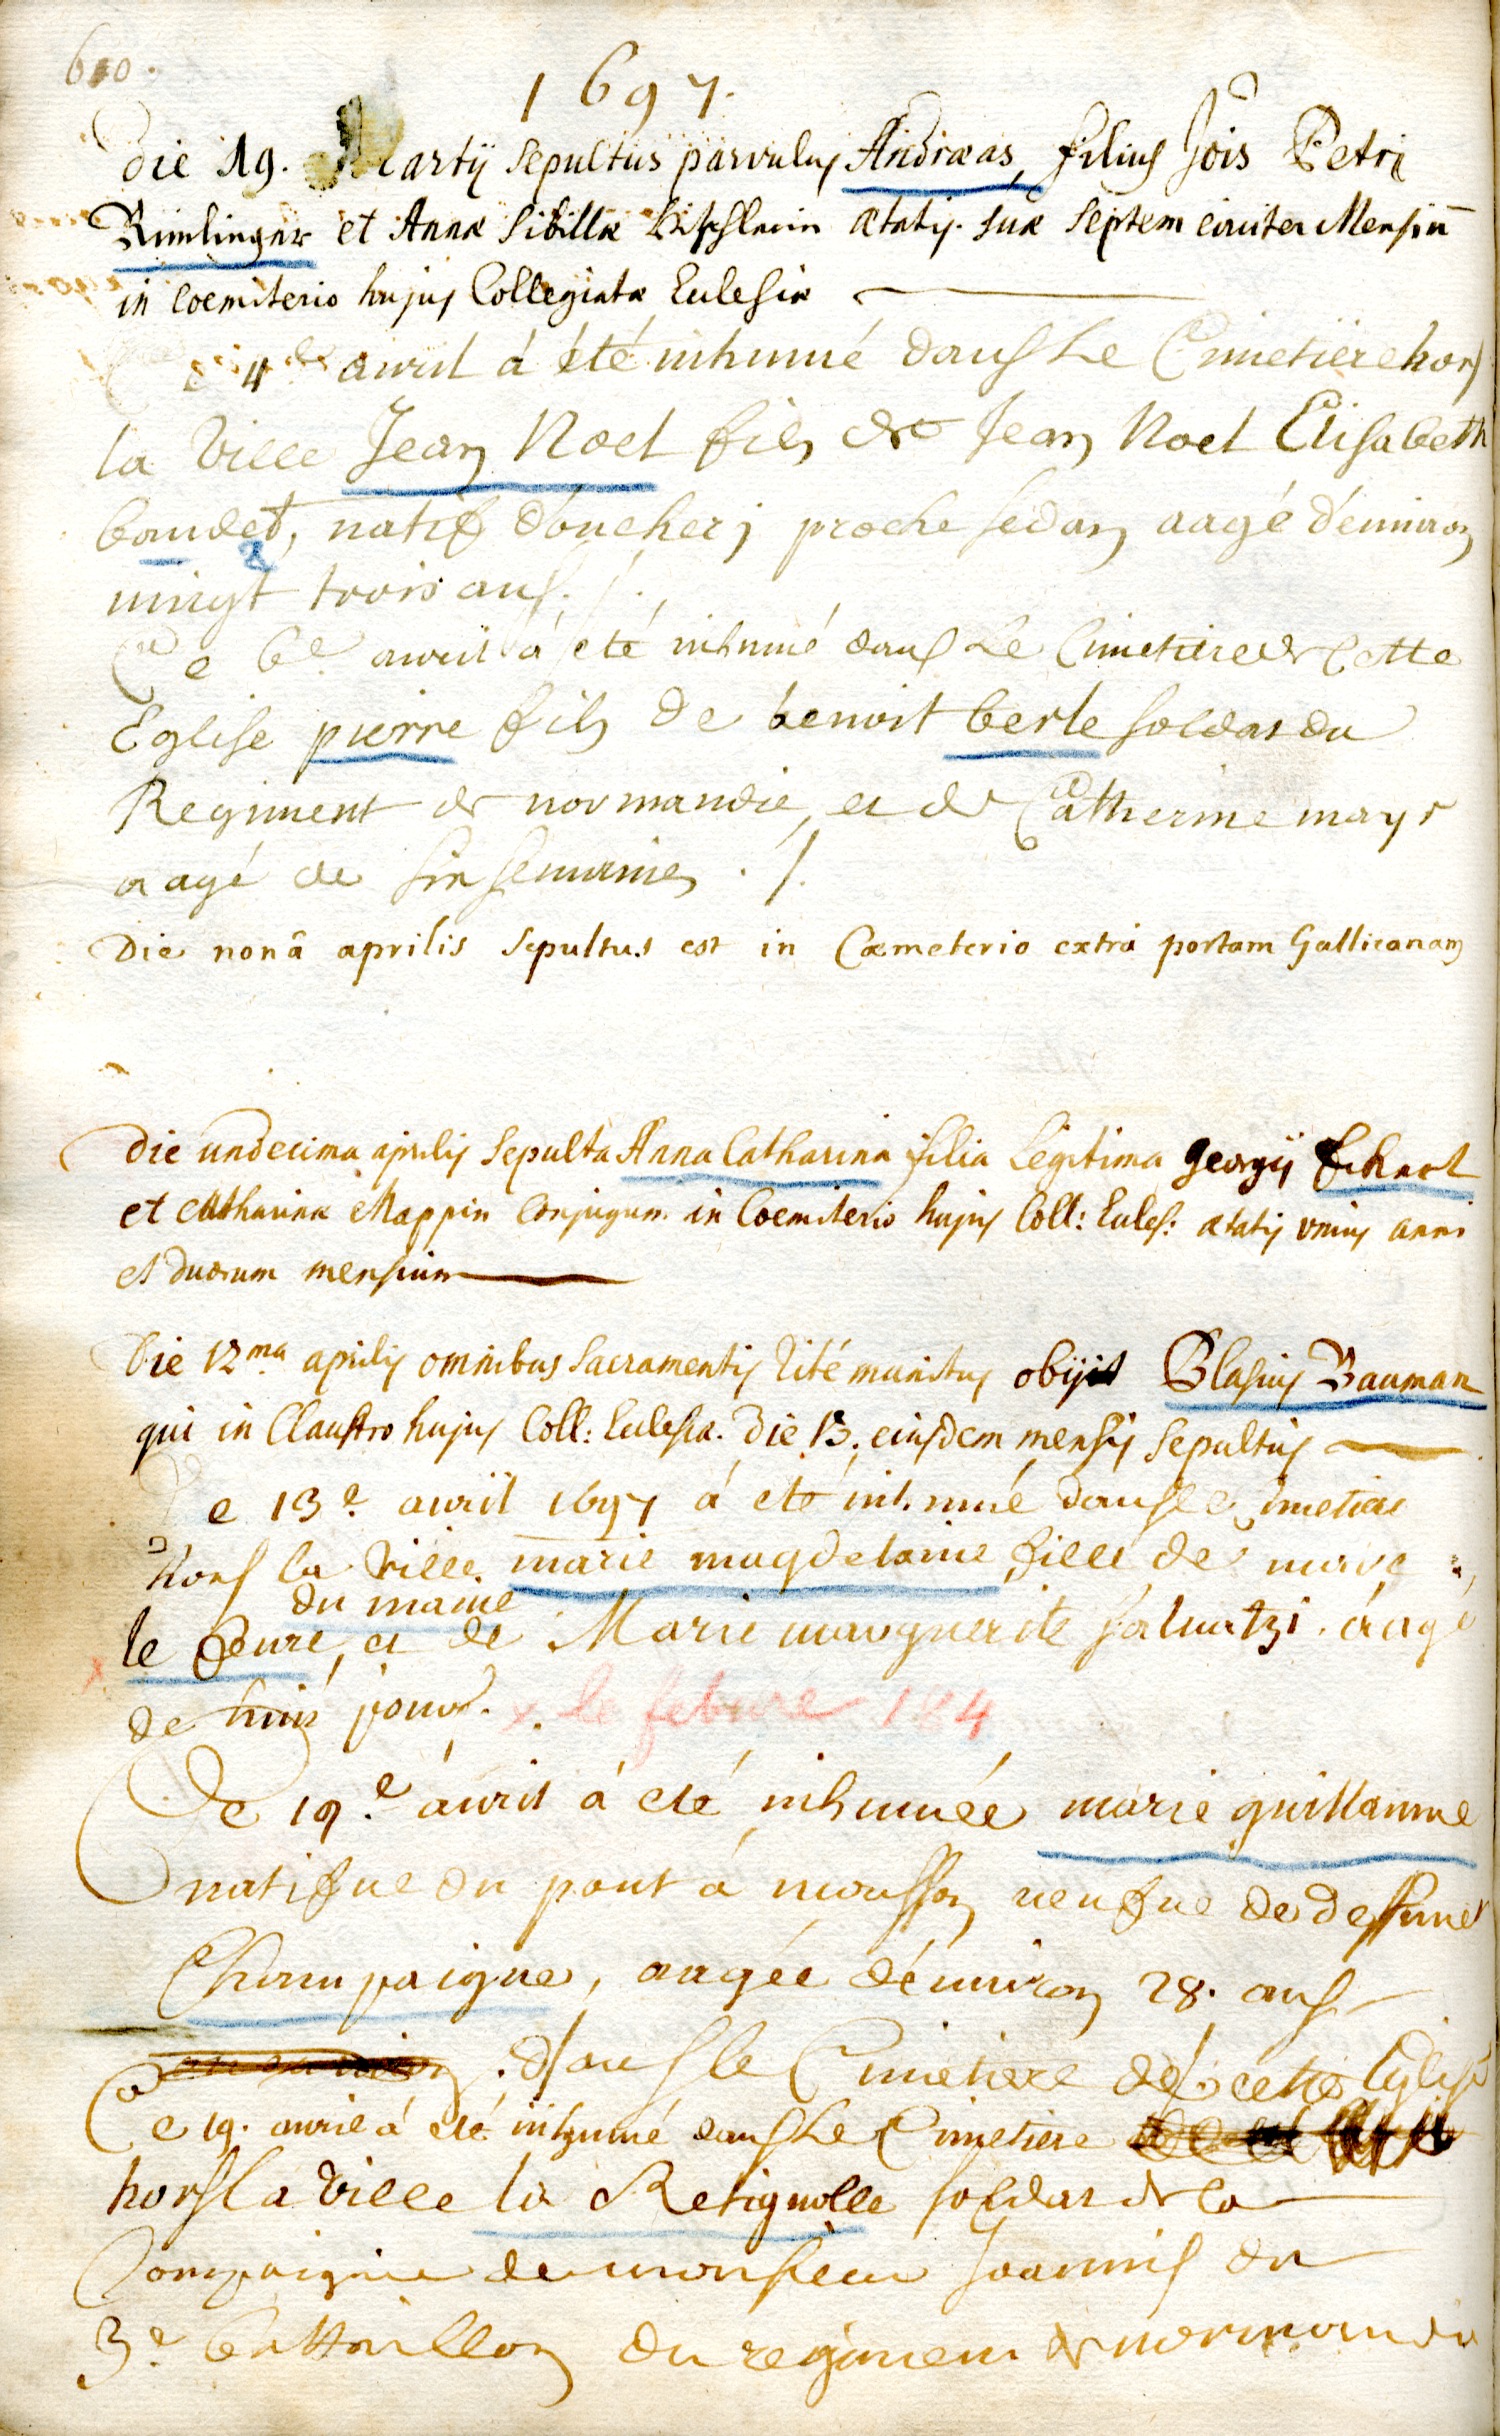 610.
1697.
Die 19. Martij sepultus parvulus Andræas, filius Jois Petri
Rimlinger et Annæ Sibillæ ætatis suæ septem circiter Mensiū
in Coemiterio hujus Collegiatæ Eclesiæ
Ce 4e avril á été inhumé dans Le Cimetiere hors
la Ville Jean Noel fils de Jean Noel Elisabeth
baudet, natif doncherj proche sedan aagé d'environ
vingt trois ans ./.
Ce 6e avril á eté inhumé dans Le Cimetiere de Cette
Eglise pierre fils de benoit berle soldat du
Regiment de normandie, et de Catherine mayr
aagé de six semaines ./.
Die nonâ aprilis sepultus est in Cœmeterio extrà portam Gallicanam
Die undecima aprilis sepulta Anna Catharina filia Legitima georgij Eckart
et Catharinæ Mappin Conjugum in Coemiterio hujus Coll: Ecles: ætatis vnius anni
et duorum mensium
Die 12ma aprilis omnibus sacramentis rité munitus obijit Blasius Bauman
qui in Claustro hujus Coll: Eclesiæ. Die 13. eiusdem mensis sepultus
Ce 13e avril 1697 á eté inhumé dans le Cimetiere
hors la Ville. marie magdelaine fille de marc
du maine
le febure, et de Marie marguerite salvatzi. áagé
de huit jours. x le febvre 184
Ce 19e avril á eté inhumée marie guillaume
natifue du pont á mousson veufue de deffunct
Champaigne, aagée d'environ 28. ans
. dans le Cimetiere de cette Eglise
Ce 19. avril á eté inhumé dans Le Cimetiere
hors la Ville la Retignolle soldat de la
Compaignie de monsieur Joannis du
3e battaillon du regiment de normandie